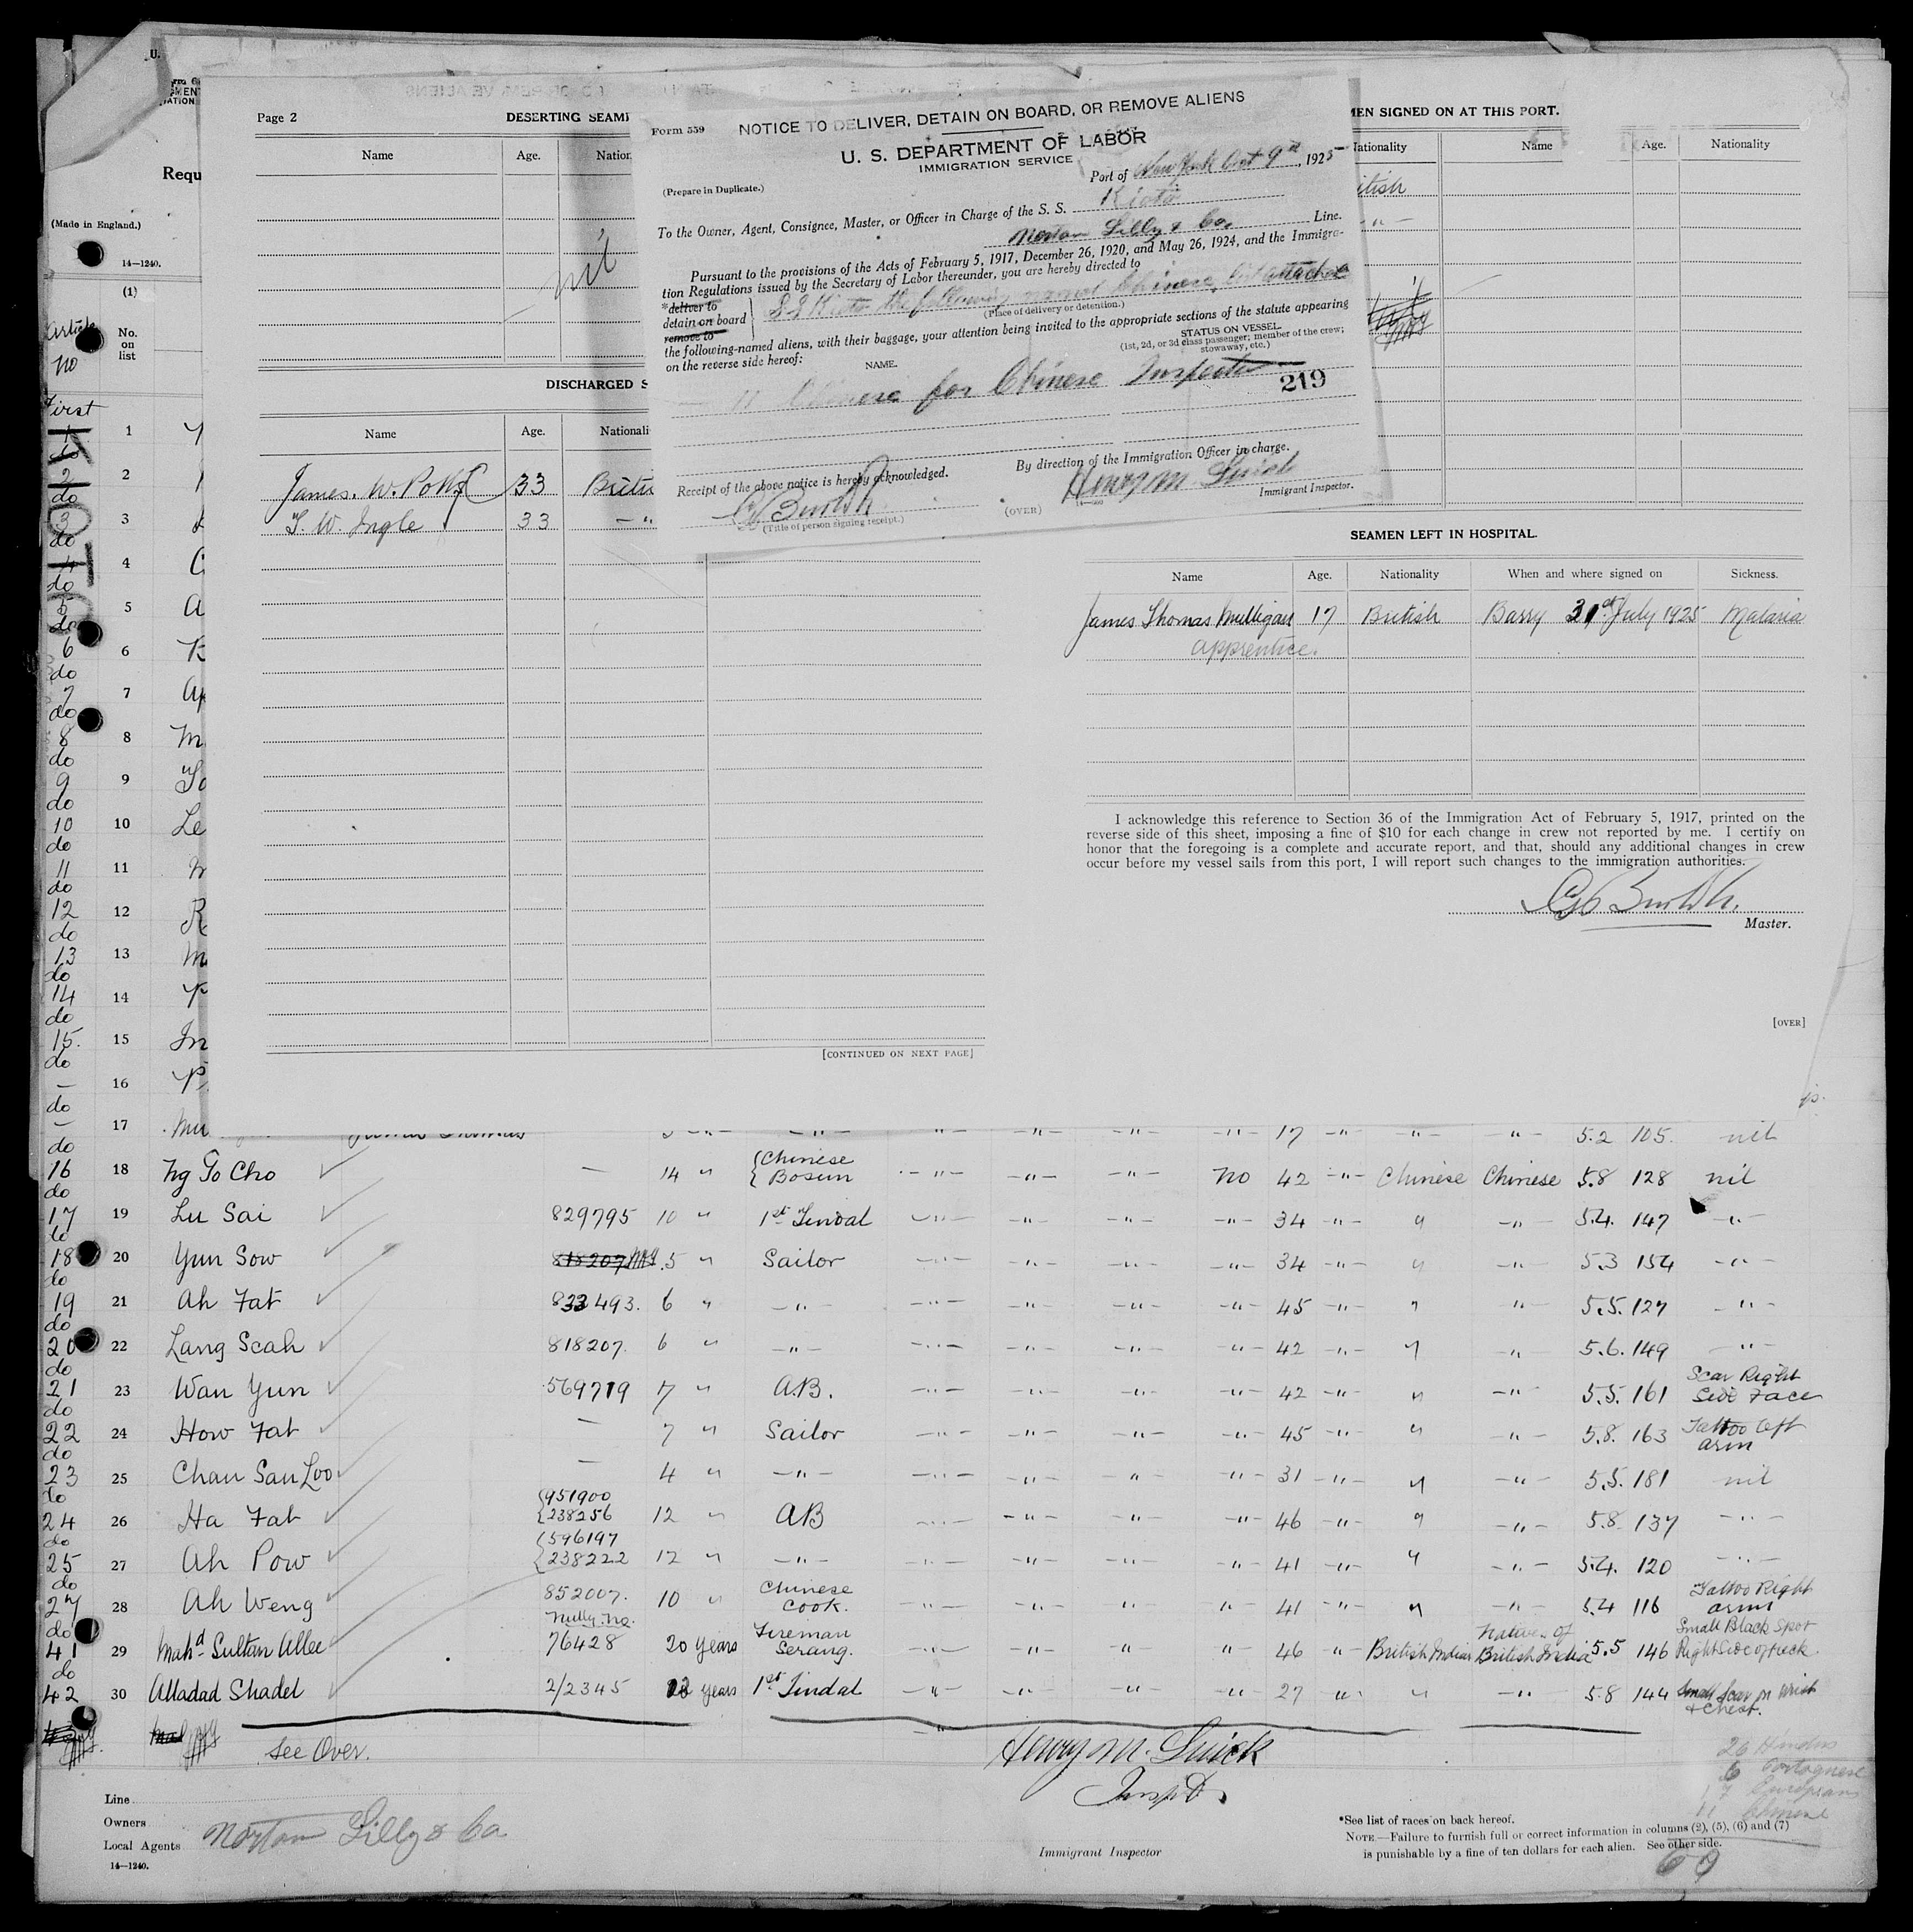 U.
Requ
(Made in England.)
14—1240.
(1)
No. on list
Article
no
First
Page 2
DESERTING SEAM
Name Age. Nation
nil
DISCHARGED S
Name Age. Nationali
James. W. Potts 33 Britis
T. W. Ingle 33 – " 
[CONTINUED ON NEXT PAGE]
Form 559
NOTICE TO DELIVER, DETAIN ON BOARD, OR REMOVE ALIENS
U. S. DEPARTMENT OF LABOR
IMMIGRATION SERVICE
(Prepare in Duplicate.)
Port of New York Oct 9th, 1925
To the Owner, Agent, Consignee, Master, or Officer in Charge of the S. S. Kioto
Norton Lilly & Co. Line.
Pursuant to the provisions of the Acts of February 5, 1917, December 26, 1920, and May 26, 1924, and the Immigra-
tion Regulations issued by the Secretary of Labor thereunder, you are hereby directed to
*deliver to
detain on board
remove to
S S Kioto the following named Chinese, list attached
(Place of delivery or detention.)
the following-named aliens, with their baggage, your attention being invited to the appropriate sections of the statute appearing
on the reverse side hereof:
NAME.
STATUS ON VESSEL.
(1st, 2d, or 3d class passenger; member of the crew; stowaway, etc.)
11 Chinese for Chinese Inspector
219
Receipt of the above notice is hereby acknowledged.
By direction of the Immigration Officer in charge.
Henry M. Quick
Immigrant Inspector.
(Title of person signing receipt.)
(OVER)
MEN SIGNED ON AT THIS PORT.
Nationality Name Age. Nationality
itish
– " –
SEAMEN LEFT IN HOSPITAL.
Name Age. Nationality When and where signed on Sickness.
James Thomas Mulligan 17 British Barry 31st July 1925 Malaria
apprentice.
I acknowledge this reference to Section 36 of the Immigration Act of February 5, 1917, printed on the
reverse side of this sheet, imposing a fine of $10 for each change in crew not reported by me. I certify on
honor that the foregoing is a complete and accurate report, and that, should any additional changes in crew
occur before my vessel sails from this port, I will report such changes to the immigration authorities.
Master.
[OVER]
1 1
do 2 2
do 3 3
do 4 4
do 5 5
do 6 6
do 7 7
do 8 8
do 9 9
do 10 10
do 11 11
do 12 12
do 13 13
do 14 14
do 15. 15
do – 16
do – 17 Mu James Thomas 17 – " – – " – – " – 5.2 105. nil
do 16 18 Ng To Cho — 14 " Chinese Bosun – " – – " – – " – No 42 – " – Chinese Chinese 5.8 128 nil
do 17 19 Lu Sai 829795 10 " 1st Tindal – " – – " – – " – – " – 34 – " – " – " – 5.4. 147 – " –
do 18 20 Yun Sow 818207 5 " Sailor – " – – " – – " – – " – 34 – " – " – " – 5.3 154 – " –
do 19 21 Ah Fat 833493. 6 " – " – – " – – " – – " – – " – 45 – " – " " 5.5. 127 – " –
do 20 22 Lang Seah 818207. 6 " – " – – " – – " – – " – – " – 42 – " – " – " – 5.6. 149 – " –
do 21 23 Wan Yun 569719 7 " AB. – " – – " – – " – – " – 42 – " – " – " – 5.5. 161 Scar Right Side Face
do 22 24 How Fat — 7 " Sailor – " – – " – – " – – " – 45 – " – " – " – 5.8. 163 Tattoo left arm
do 23 25 Chan San Loo — 4 " – " – – " – – " – – " – – " – 31 – " – " – " – 5.5. 181 nil
do 24 26 Ha Fat 951900 238256 12 " AB – " – – " – – " – – " – 46 – " – " – " – 5.8 137 – " –
do 25 27 Ah Pow 596197 238222 12 " – " – – " – – " – – " – " 41 – " – " – " – 5.4. 120 – " –
do 27 28 Ah Weng 852007. 10 " Chinese Cook. – " – – " – " " 41 – " – " – " – 5.4 116 Tattoo Right arm
do 41 29 Mahd Sultan Allee Nully No. 76428 20 years Fireman Serang. – " – – " – " " 46 " – British Indian Natives of British India 5.5 146 Small Black Spot Right Side of neck
do 42 30 Alladad Shadel 2/2345 12 years 1st Tindal – " – – " – – " – – " – 27 " " – " – 5.8 144 Small Scar on Wrist & Chest.
See Over.
Henry M. Quick
Insptr.
26 Hindus
6 Portuguese
17 Europeans
11 Chinese
60
Line
Owners
Local Agents Norton Lilly & Co
14—1240.
Immigrant Inspector
*See list of races on back hereof.
NOTE.—Failure to furnish full or correct information in columns (2), (5), (6) and (7)
is punishable by a fine of ten dollars for each alien. See other side.